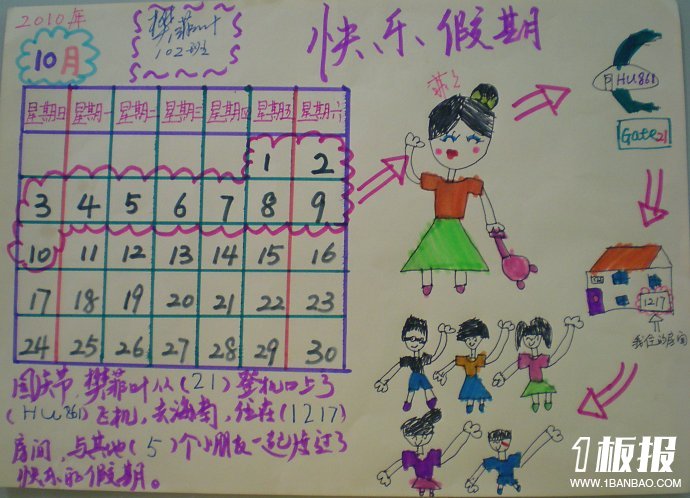 2010年
10月
樊菲叶
102班
快乐假期
星期日 星期一 星期二 星期三 星期四 星期五 星期六
1 2
3 4 5 6 7 8 9
10 11 12 13 14 15 16
17 18 19 20 21 22 23
24 25 26 27 28 29 30
HU861
Gate21
1217
我住的房间
国庆节,樊菲叶从(21)登机口上了
(HU861)飞机,去海南,住在(1217)
房间,与其他(5)个小朋友一起度过了
快乐的假期。
1板报
WWW.1BANBAO.COM